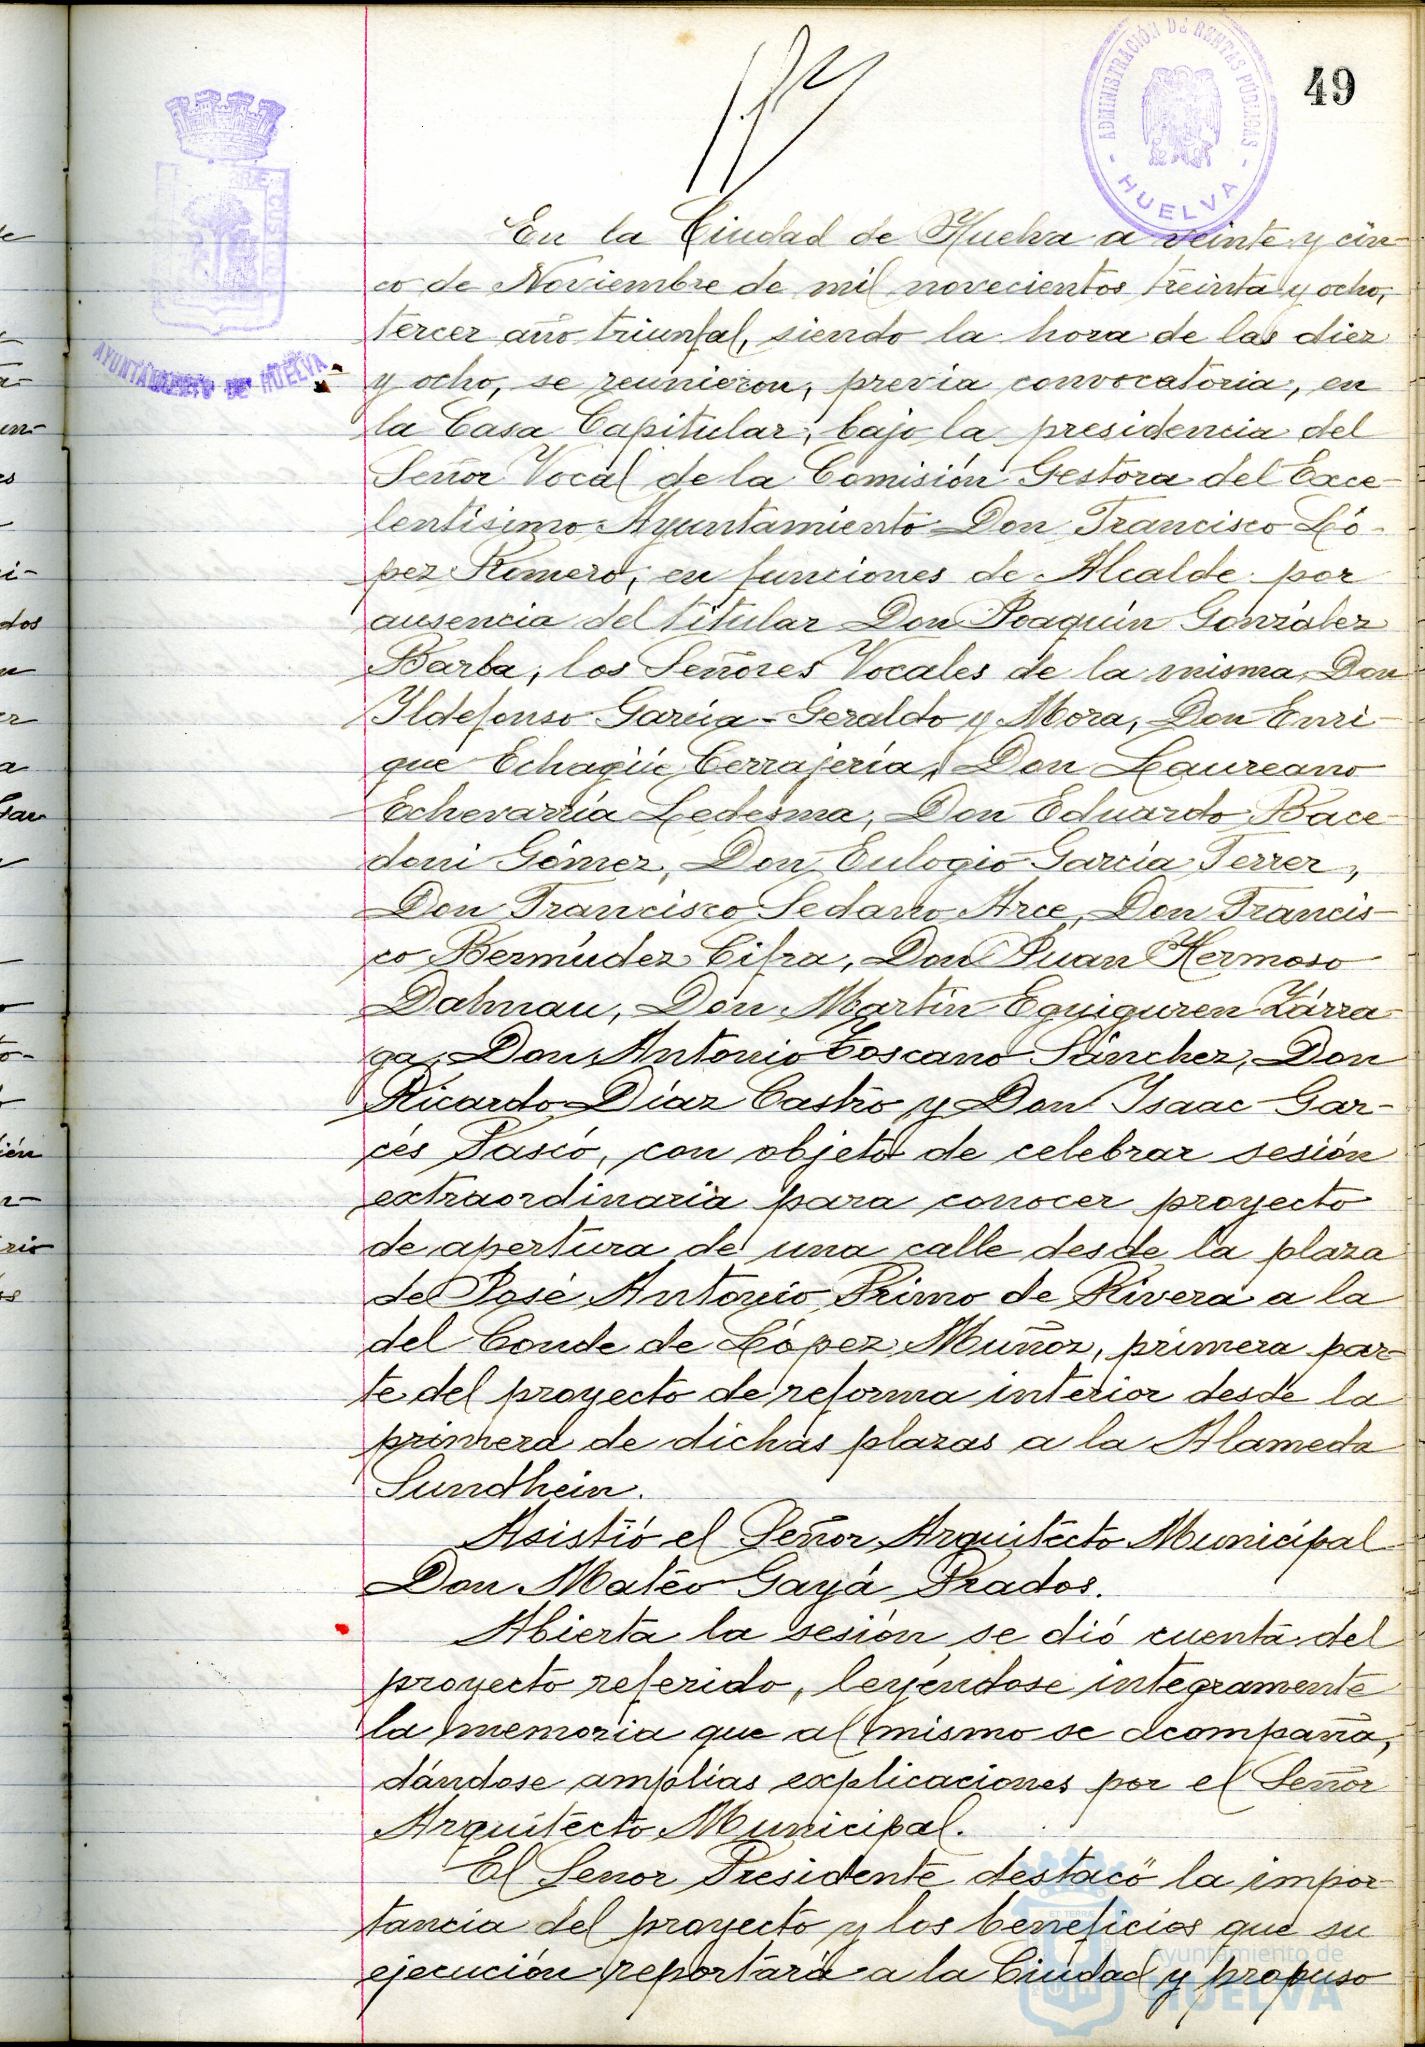 49
ADMINISTRACIÓN DE RENTAS PÚBLICAS
- HUELVA -
AYUNTAMIENTO DE HUELVA
En la Ciudad de Huelva a veinte y cin-
co de Noviembre de mil novecientos treinta y ocho,
tercer año triunfal, siendo la hora de las diez
y ocho, se reunieron, previa convocatoria, en
la Casa Capitular, bajo la presidencia del
Señor Vocal de la Comisión Gestora del Exce-
lentísimo Ayuntamiento Don Francisco Ló-
pez Romero, en funciones de Alcalde por
ausencia del titular Don Joaquín González
Barba, los Señores Vocales de la misma, Don
Yldefonso García-Geraldo y Mora, Don Enri-
que Echagüe Cerrajería, Don Laureano
Echevarría Ledesma, Don Eduardo Bace-
doni Gómez, Don Eulogio García Ferrer,
Don Francisco Sedano Arce, Don Francis-
co Bermúdez Cifra, Don Juan Hermoso
Dalmau, Don Martín Eguiguren Zárra-
ga, Don Antonio Toscano Sánchez, Don
Ricardo Díaz Castro y Don Isaac Gar-
cés Pascó, con objeto de celebrar sesión
extraordinaria para conocer proyecto
de apertura de una calle desde la plaza
de José Antonio Primo de Rivera a la
del Conde de López Muñoz, primera par-
te del proyecto de reforma interior desde la
primera de dichas plazas a la Alameda
Sundhein.
Asistió el Señor Arquitecto Municipal
Don Mateo Gayá Prados.
Abierta la sesión se dió cuenta del
proyecto referido, leyéndose integramente
la memoria que al mismo se acompaña,
dándose amplias explicaciones por el Señor
Arquitecto Municipal.
El Señor Presidente destacó la impor-
tancia del proyecto y los beneficios que su
ejecución reportará a la Ciudad y propuso
Ayuntamiento de
HUELVA